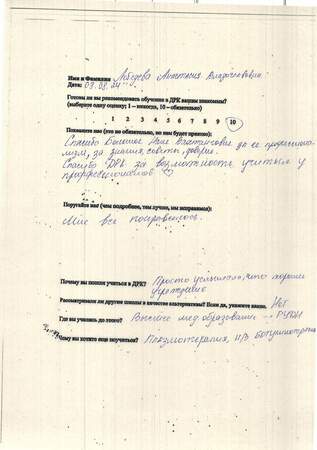 Имя и Фамилия Лебедева Анастасия Владиславовна
Дата: 09.08.24
Готовы ли вы рекомендовать обучение в ДРК вашим знакомым?
(выберите одну оценку; 1 – никогда, 10 – обязательно)
1 2 3 4 5 6 7 8 9 10
Похвалите нас (это не обязательно, но нам будет приятно):
Спасибо Большое за ее профессионализм, за знания, советы, доверие.
Спасибо ДРК за возможность учиться у
профессионалов ♡
Поругайте нас (чем подробнее, тем лучше, мы исправимся):
Мне все понравилось.
Почему вы пошли учиться в ДРК? Просто услышала, что хорошее
учреждение
Рассматривали ли другие школы в качестве альтернативы? Если да, укажите какие. Нет
Где вы учились до этого? Высшее мед образование – РУДН
Чему вы хотите еще научиться? Плазмотерапия,